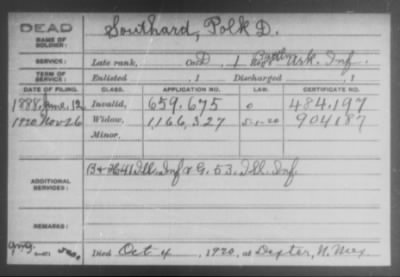 DEAD
NAME OF SOLDIER: Southard, Polk D.
SERVICE: Late rank, Co. D, 1 Reg't Ark. Inf.
TERM OF SERVICE: Enlisted , 1 Discharged , 1
DATE OF FILING. CLASS. APPLICATION NO. LAW. CERTIFICATE NO.
1888, June, 12 Invalid, 659.675 0 484.197
1920 Nov 26 Widow, 1,166,327 5-1-20 904187
Minor,
ADDITIONAL SERVICES: Ill. Inf & G. 53. Ill. Inf.
REMARKS:
Died Oct 4, 1920, at Dexter, N. Mex